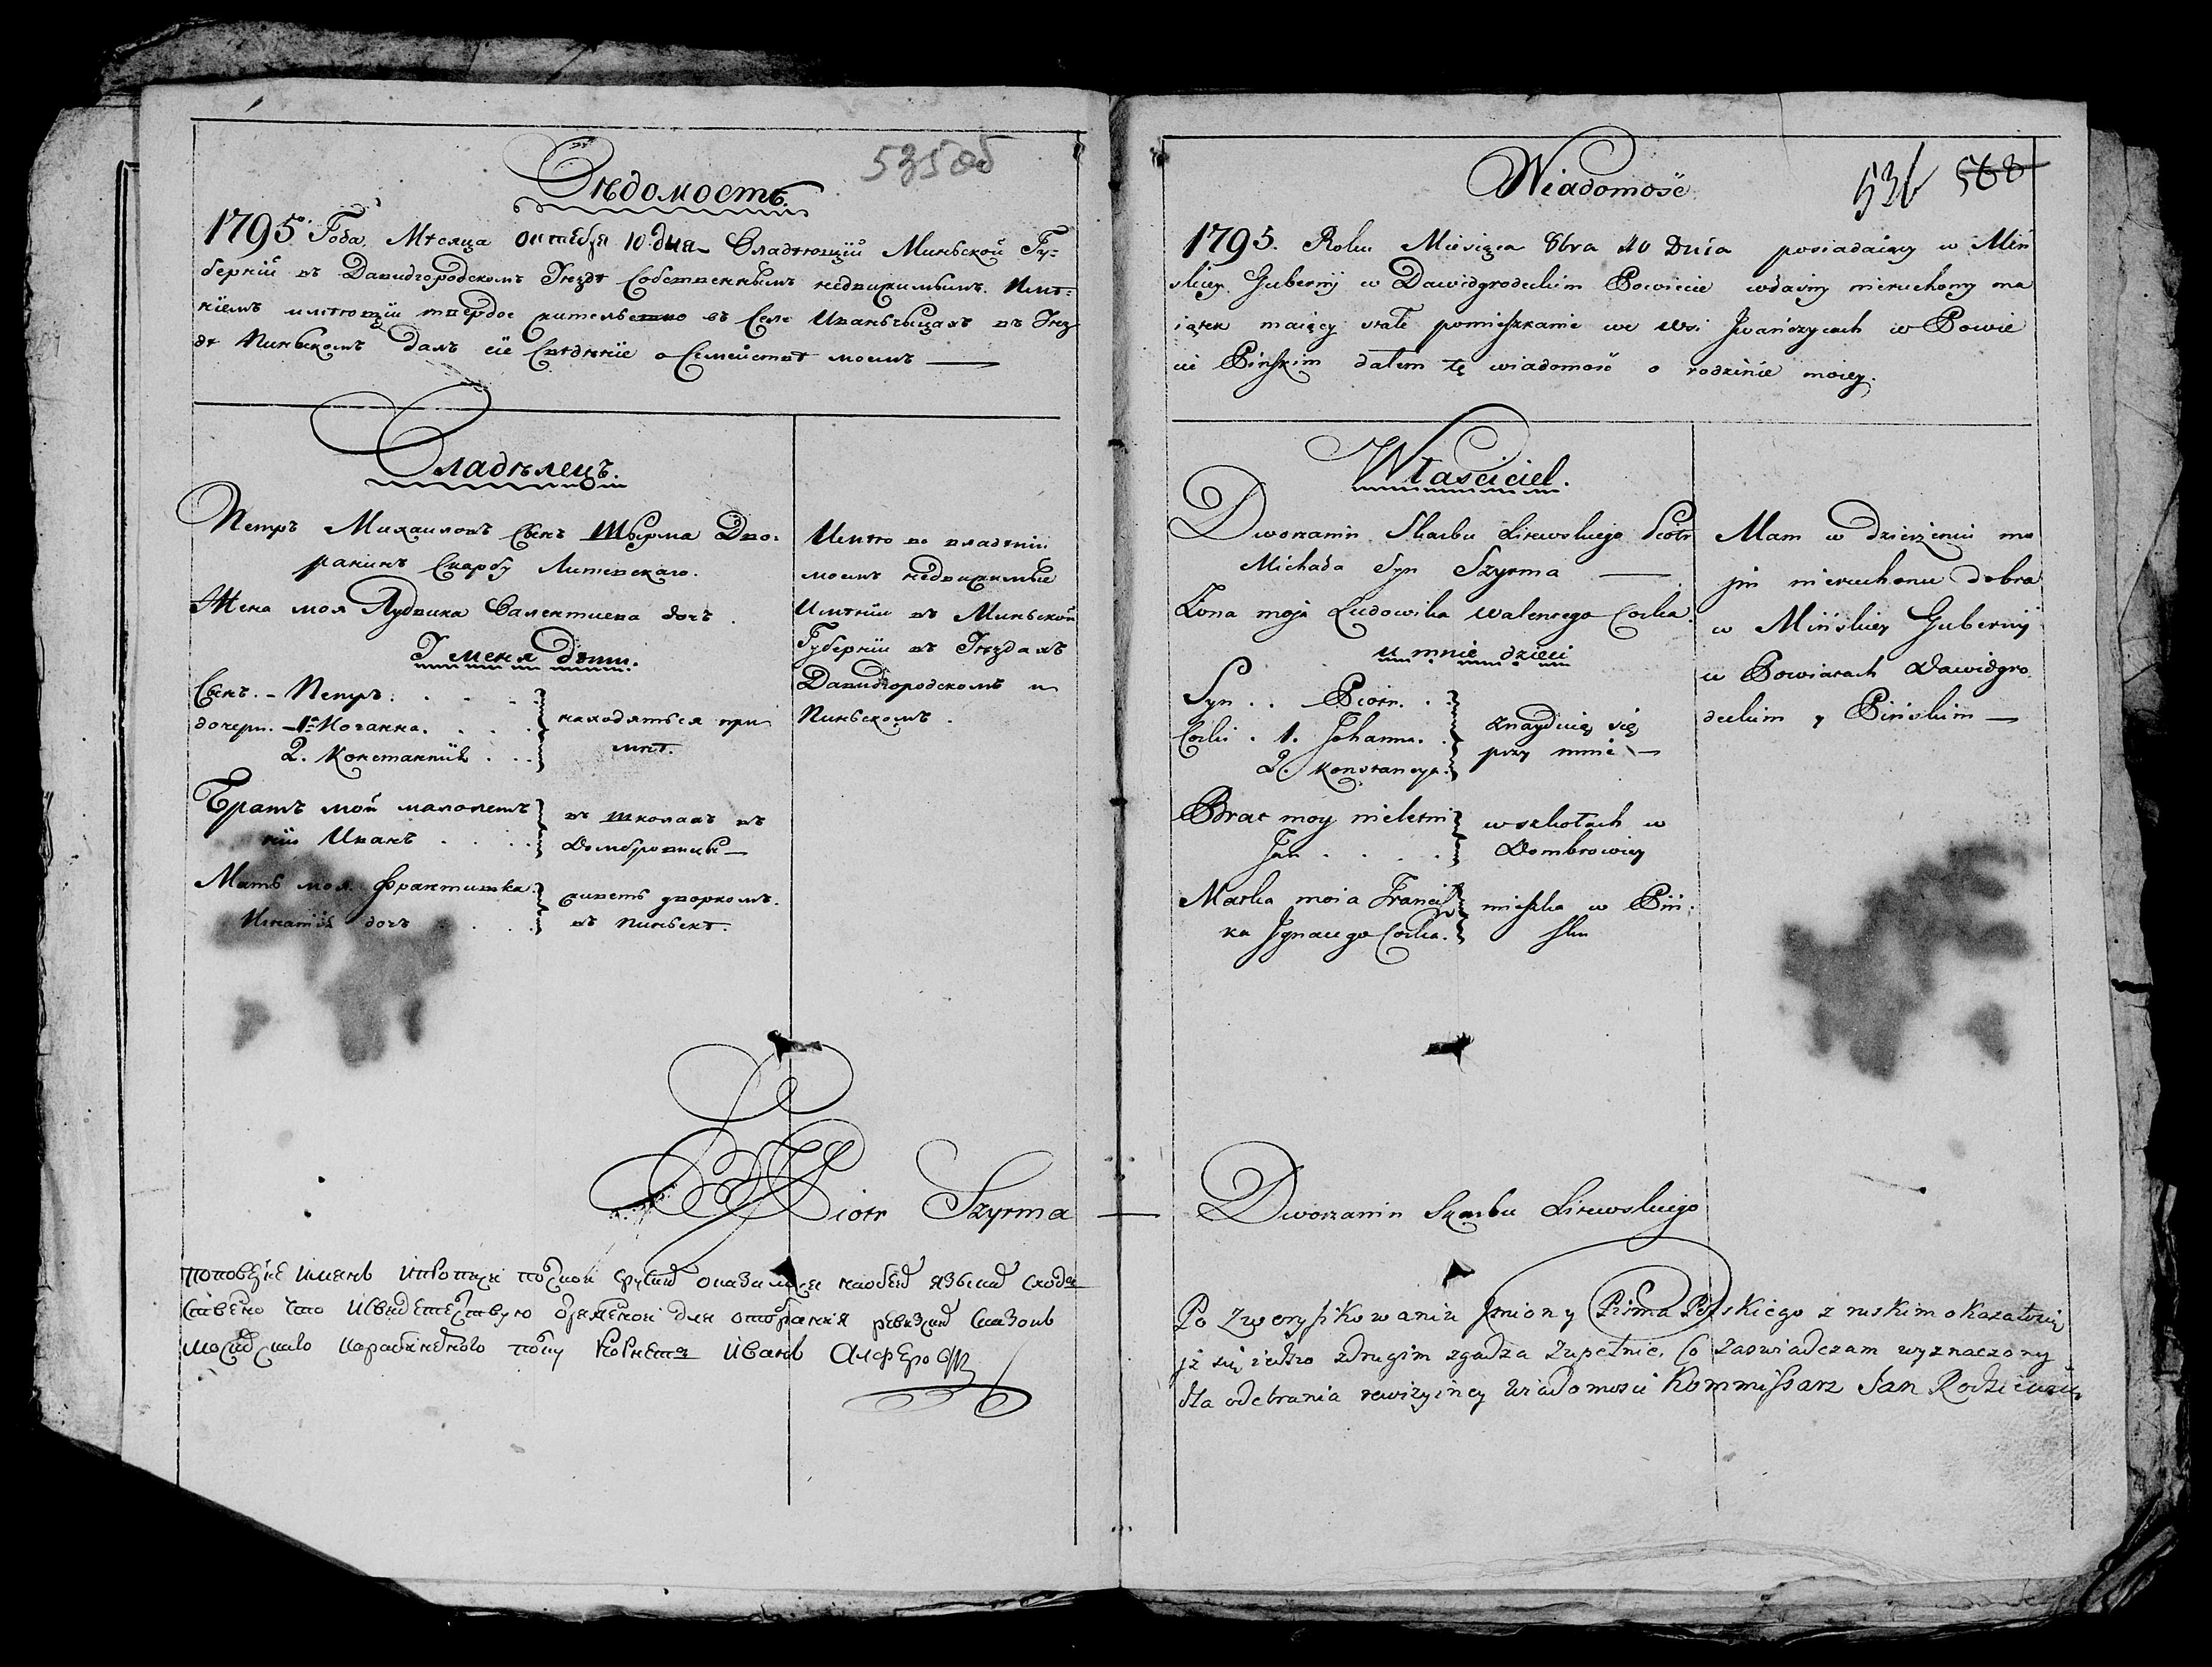 535 об
Вѣдомость.
1795го Года. Мѣсяца октебря 10 дня Владѣющій Миньской Гу-
берніи въ Давидгородскомъ Уездѣ Собственнымъ недвижимымъ Имѣ-
ніемъ имѣющій твердое жительство въ Селе Иваньчыцахъ въ Уез
дѣ Пиньскомъ далъ сіе Свѣдѣніе о Семействѣ моемъ
Владѣлецъ.
Петръ Михаиловъ Сынъ Шырма Дво-
ранинъ Скарбу Литевскаго.
Жена моя Людвика Валентиева дочъ.
У меня дѣти.
Сынъ. Петръ.
дочери. 1. Иоганна.
2. Констанція
находяться при
мнѣ.
Братъ мой малолетъ
ній Иванъ
въ школахъ въ
Домбровицы
Мать моя Франтишка
Игнатія дочъ
живетъ дворкомъ
въ Пиньскѣ.
Имѣю во владѣніи
моемъ недвижимые
Имѣніи въ Миньской
Губерніи въ Уездахъ
Давидгородскомъ и
Пиньскомъ.
Piotr Szyrma
языкахъ сход
ственно что и свидетелствую для отобрания ревизкихъ сказокъ
полку Корнетъ Иванъ Алферов
536 568
Wiadomość
1795. Roku Miesięca 8bra 10 Dnia posiadaiący w Miń
skiey Guberniy w Dawidgrodeckim Powiecie własny nieruchomy ma
iątek maiący stałe pomieszkanie we wsi Iwańczycach w Powie
cie Pińskim dałem tę wiadomość o rodzinie moiey.
Właściciel.
Dworzanin Skarbu Litewskiego Piotr
Michała Syn Szyrma
Żona moja Ludowika Walentego Corka.
u mnie dzieci
Syn . . Piotr. .
Corki . 1. Johanna. .
2. Konstancya.
znayduią się
przy mnie
Brat moy nieletni
Jan . . . .
w szkołach w
Dombrowicy
Matka moia Francisz
ka Ignacego Corka.
mieszka w Piń
sku
Mam w dzierżeniu mo
jm nieruchome dobra
w Mińskiey Guberniy
w Powiatach Dawidgro
deckim y Pińskim
Dworzanin Skarbu Litewskiego
Po zweryfikowaniu Jmiony Pisma Polskiego z ruskim okazało się
jż się iedno zdrugim zgadza zupełnie, Co zaswiadczam wyznaczony
dla odebrania rewizyiney wiadomosci Kommissarz Jan Rodziewicz